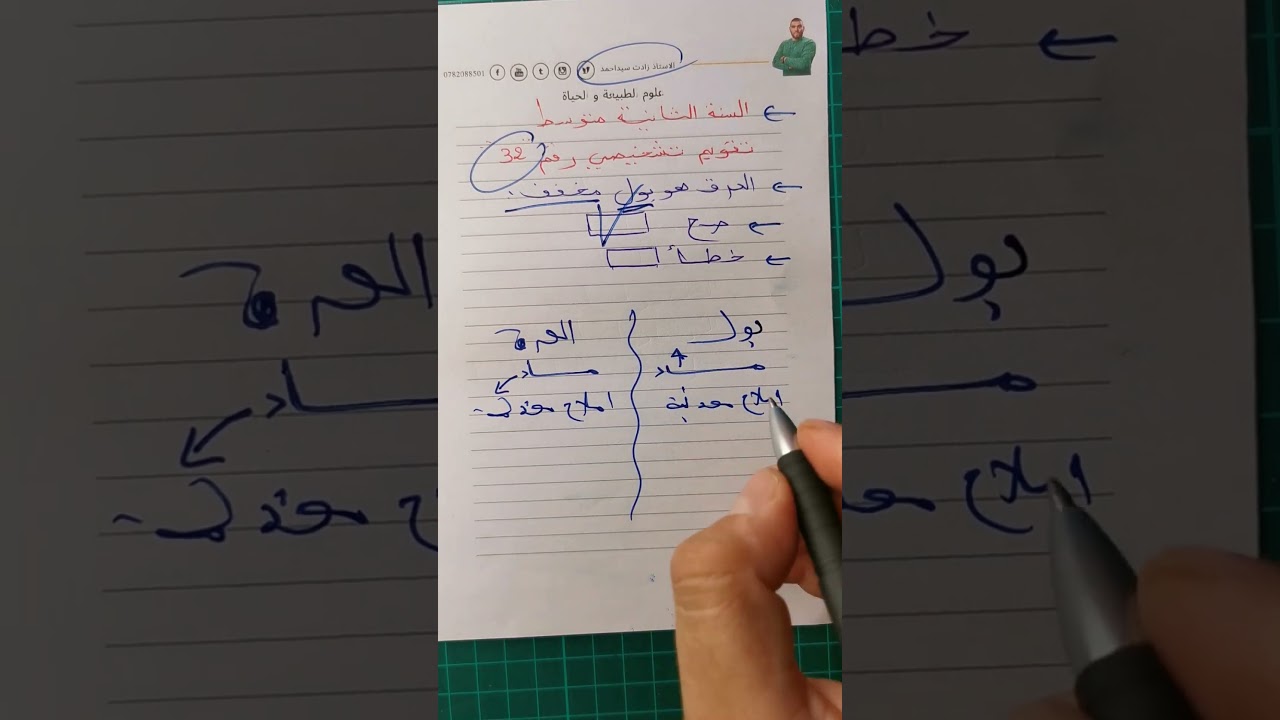 الاستاذ زادت سيداحمد 0782088501
علوم الطبيعة و الحياة
← السنة الثانية متوسط
تقويم تشخيصي رقم 32
← العرق هو بول مخفف.
← صح
← خطأ
بول العرق
مـاء مـاء
املاح معدنية املاح معدنية